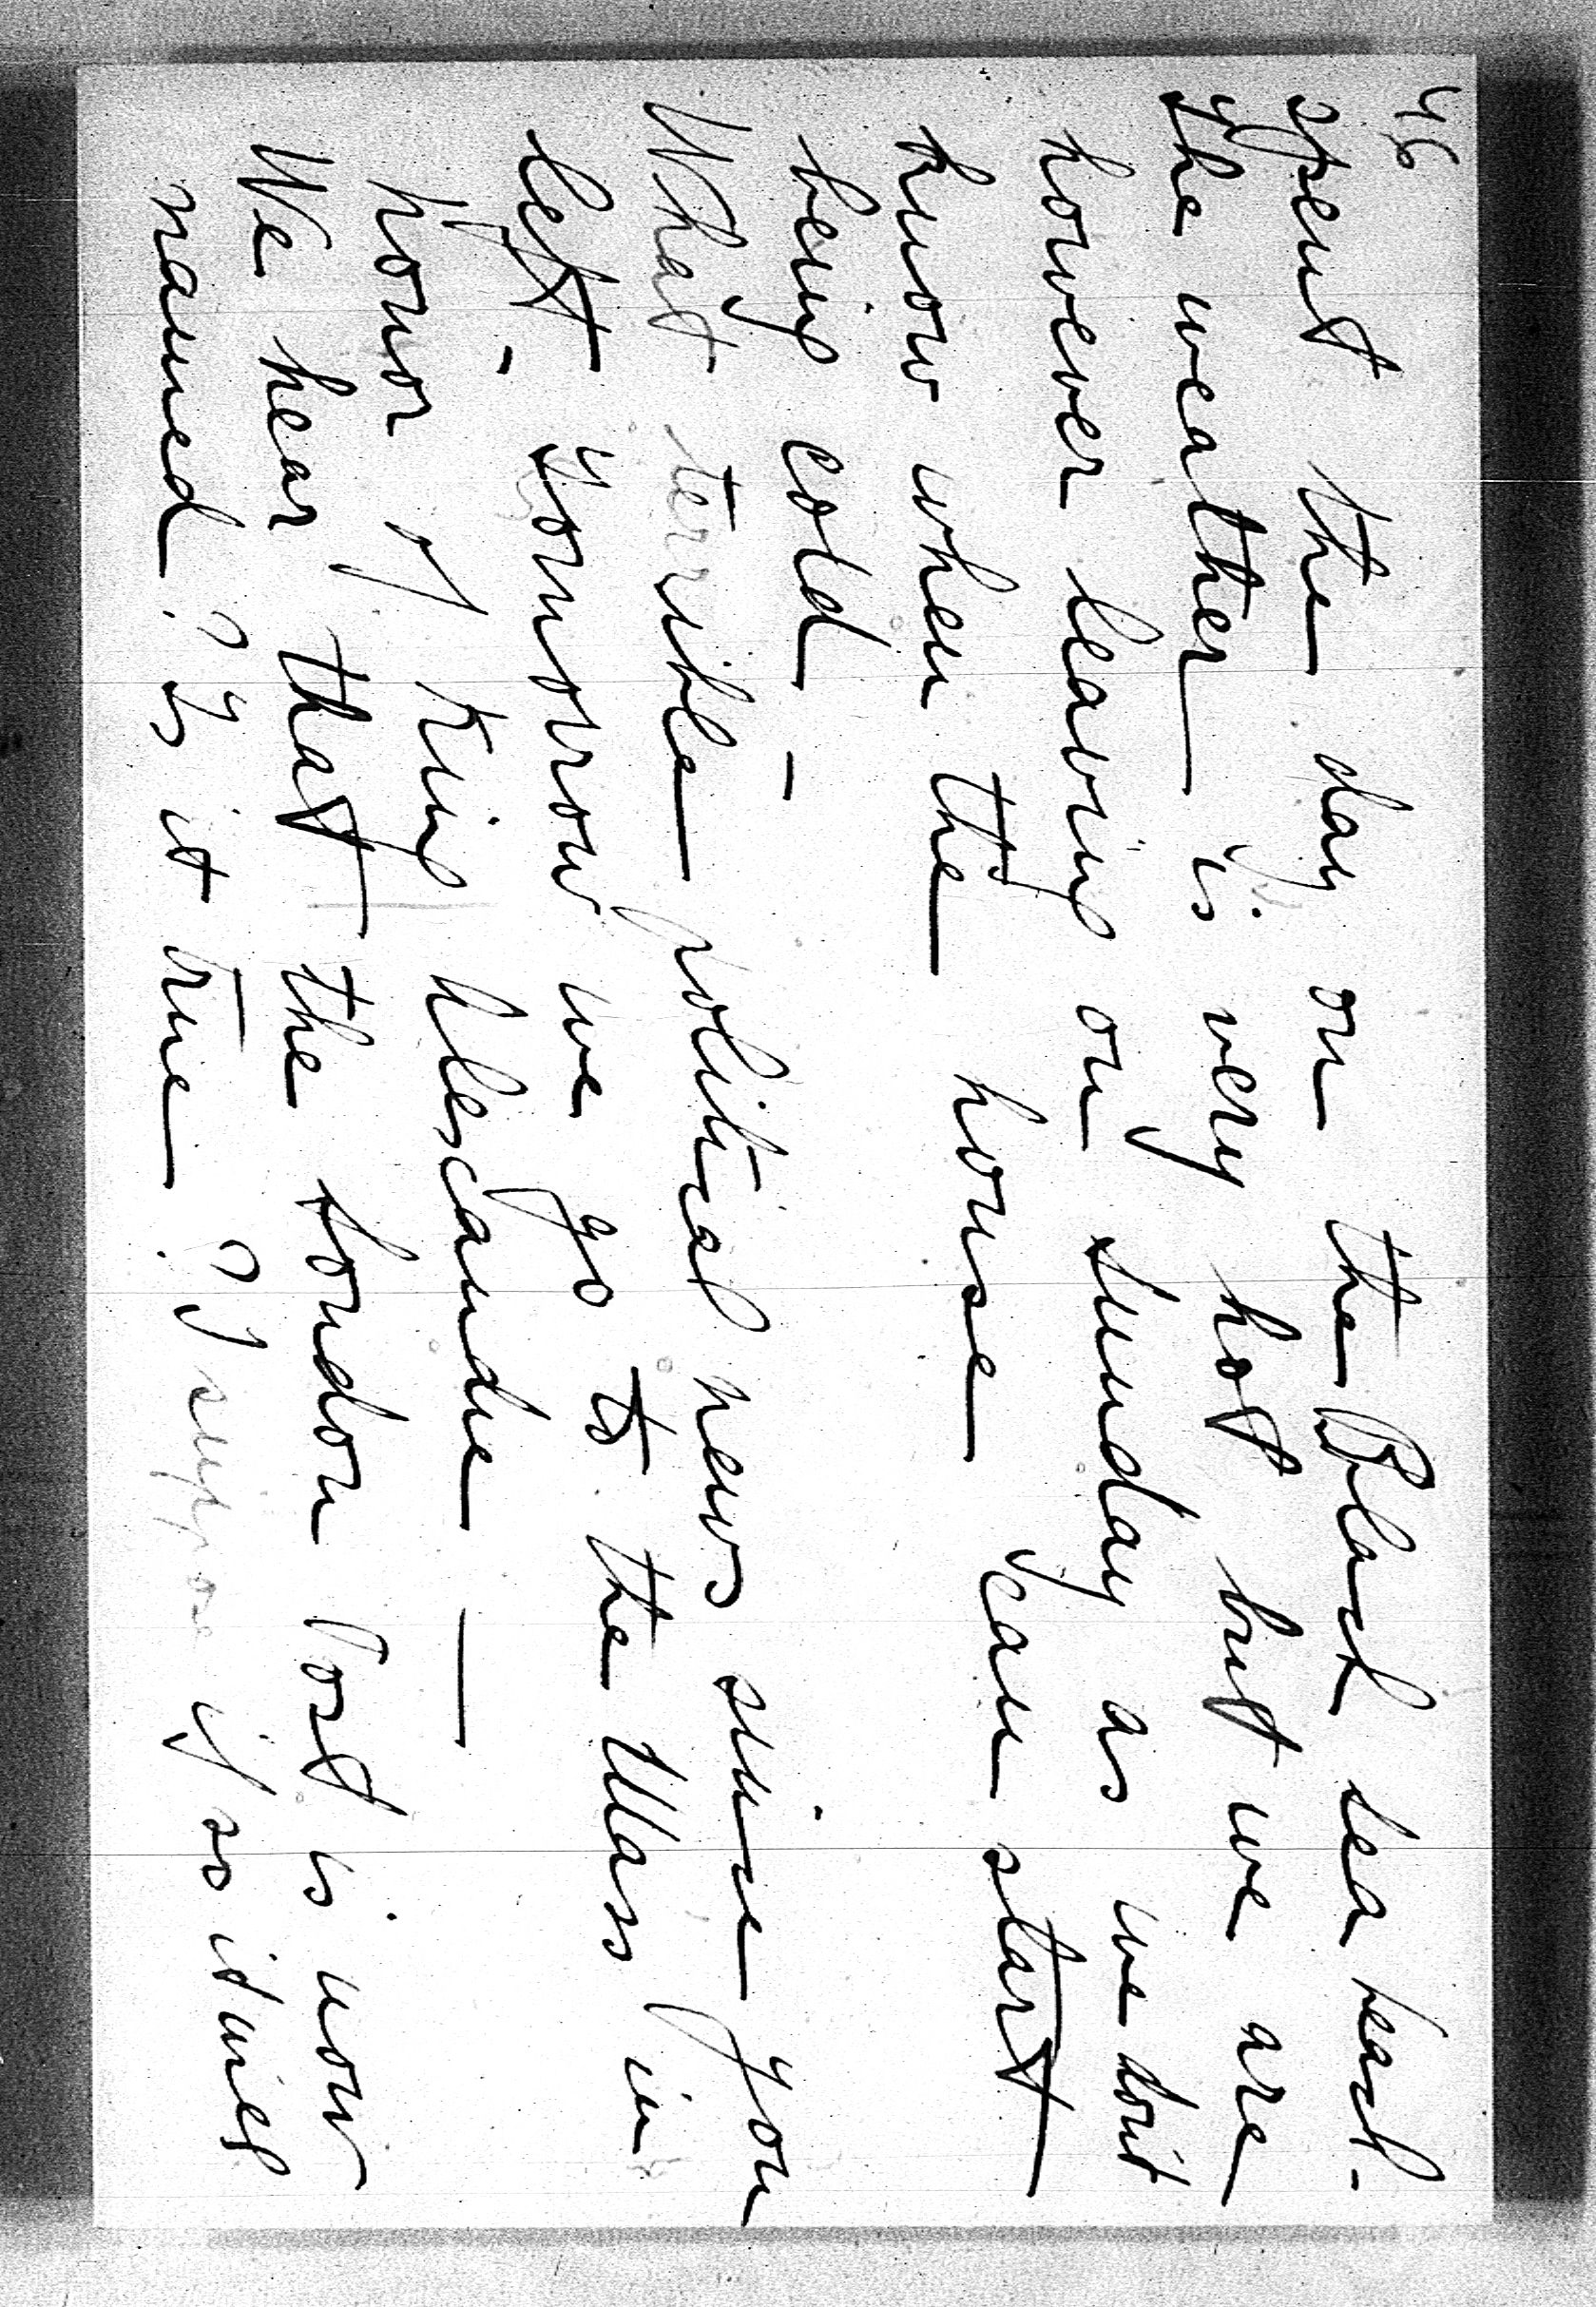 46
spent the day on the Black Sea beach -
The weather is very hot but we are
however leaving on Sunday as we don't
know when the house can start
being cold -
What terrible political news since you
left - Tomorrow we go to the Mass in
honor of King Alexandre -
We hear that the London Post is now
named ? Is it true ? I suppose if so it will